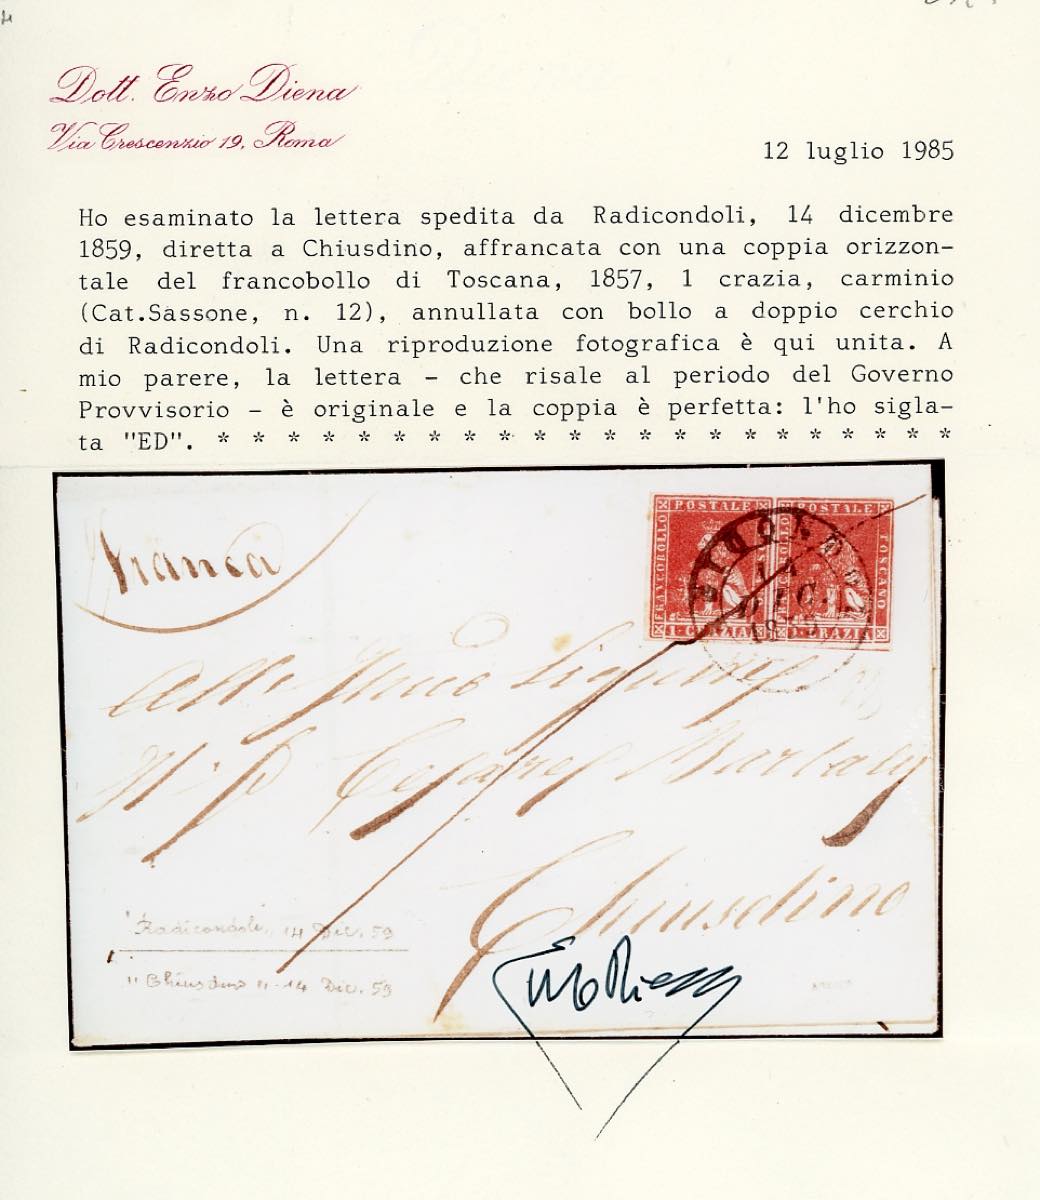 Dott. Enzo Diena
Via Crescenzio 19, Roma
12 luglio 1985
Ho esaminato la lettera spedita da Radicondoli, 14 dicembre
1859, diretta a Chiusdino, affrancata con una coppia orizzon-
tale del francobollo di Toscana, 1857, 1 crazia, carminio
(Cat.Sassone, n. 12), annullata con bollo a doppio cerchio
di Radicondoli. Una riproduzione fotografica è qui unita. A
mio parere, la lettera - che risale al periodo del Governo
Provvisorio - è originale e la coppia è perfetta: l'ho sigla-
ta "ED". * * * * * * * * * * * * * * * * * * * * *
franca
FRANCOBOLLO POSTALE
1 CRAZIA
FRANCOBOLLO POSTALE TOSCANO
1 CRAZIA
14
DIC.
Chiusdino
Radicondoli, 14 Dic. 59
" Chiusdino " - 14 Dic. 59
Enzo Diena